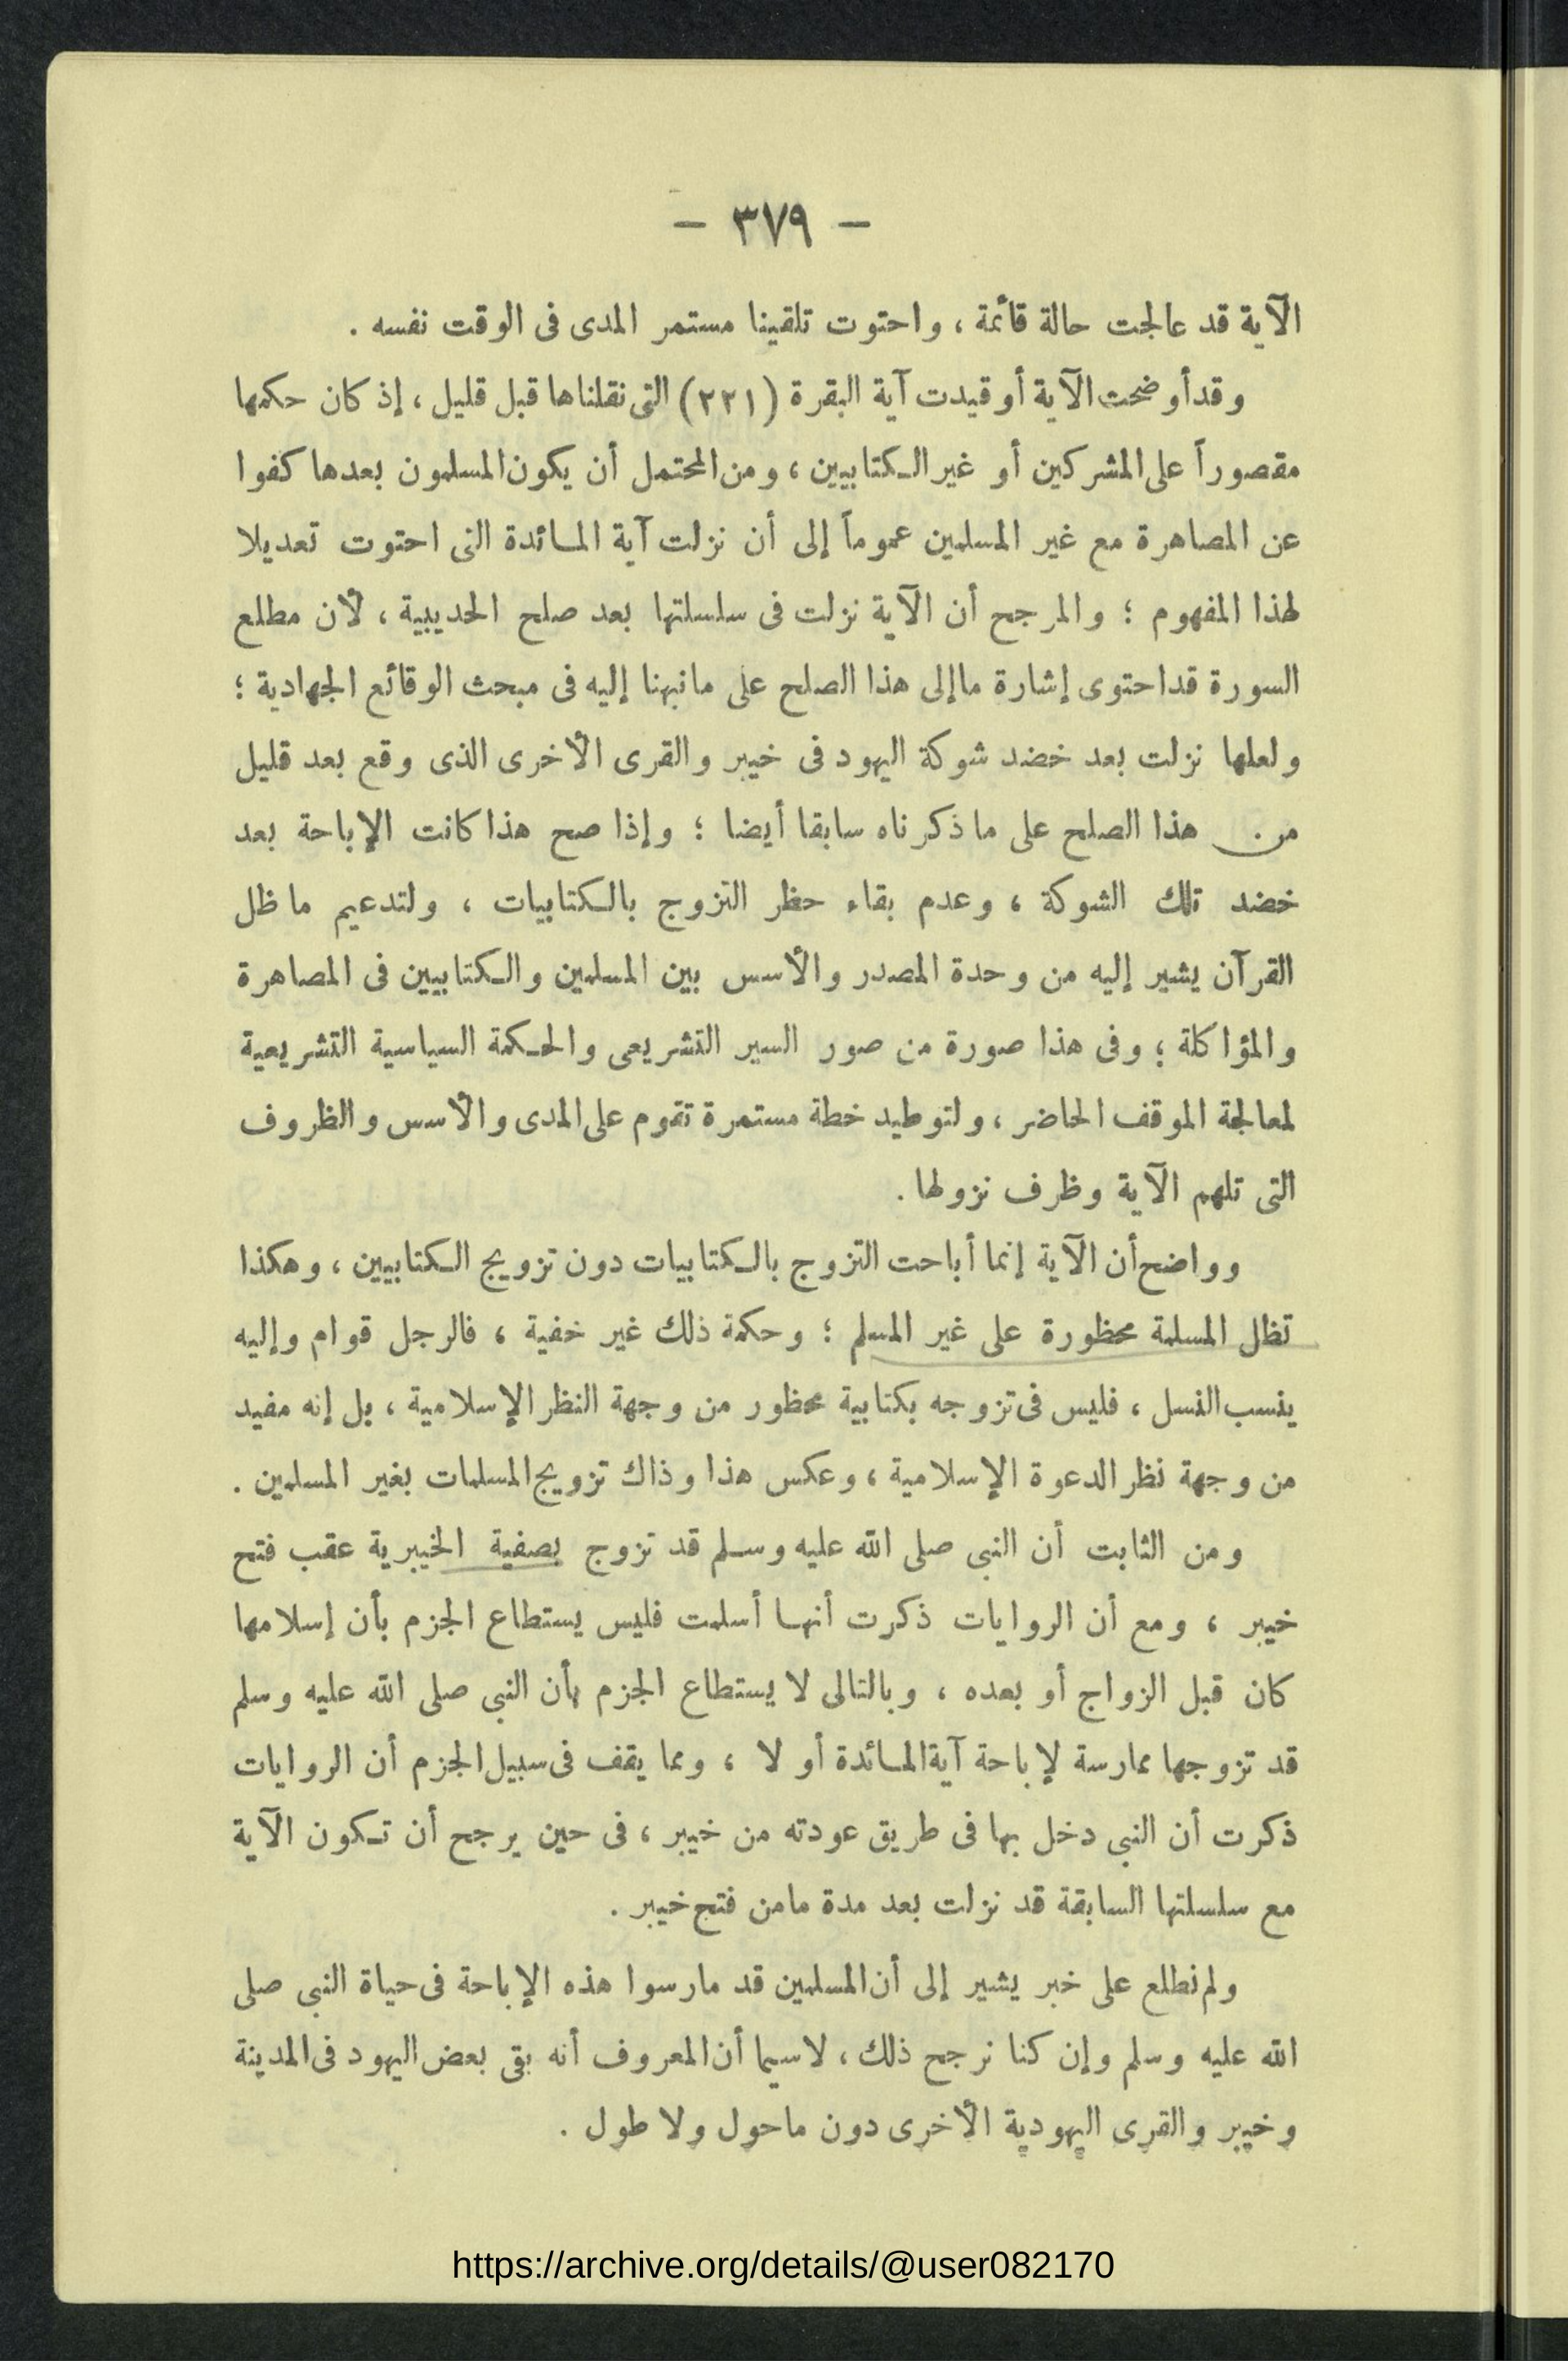 — ٣٧٩ —
الآية قد عالجت حالة قائمة ، واحتوت تلقينا مستمر المدى فى الوقت نفسه .
وقد أوضحت الآية أو قيدت آية البقرة (٢٢١) التى نقلناها قبل قليل ، إذ كان حكمها
مقصوراً على المشركين أو غير الكتابيين ، ومن المحتمل أن يكون المسلمون بعدها كفوا
عن المصاهرة مع غير المسلمين عموماً إلى أن نزلت آية المائدة التى احتوت تعديلا
لهذا المفهوم ؛ والمرجح أن الآية نزلت فى سلسلتها بعد صلح الحديبية ، لأن مطلع
السورة قد احتوى إشارة ما إلى هذا الصلح على ما نبهنا إليه فى مبحث الوقائع الجهادية ؛
ولعلها نزلت بعد خضد شوكة اليهود فى خيبر والقرى الأخرى الذى وقع بعد قليل
من هذا الصلح على ما ذكرناه سابقا أيضا ؛ وإذا صح هذا كانت الإباحة بعد
خضد تلك الشوكة ، وعدم بقاء حظر التزوج بالكتابيات ، ولتدعيم ما ظل
القرآن يشير إليه من وحدة المصدر والأسس بين المسلمين والكتابيين فى المصاهرة
والمؤاكلة ؛ وفى هذا صورة من صور السير التشريعى والحكمة السياسية التشريعية
لمعالجة الموقف الحاضر ، ولتوطيد خطة مستمرة تقوم على المدى والأسس والظروف
التى تلهم الآية وظرف نزولها .
وواضح أن الآية إنما أباحت التزوج بالكتابيات دون تزويج الكتابيين ، وهكذا
تظل المسلمة محظورة على غير المسلم ؛ وحكمة ذلك غير خفية ، فالرجل قوام وإليه
ينسب النسل ، فليس فى تزوجه بكتابية محظور من وجهة النظر الإسلامية ، بل إنه مفيد
من وجهة نظر الدعوة الإسلامية ، وعكس هذا وذاك تزويج المسلمات بغير المسلمين .
ومن الثابت أن النبى صلى الله عليه وسلم قد تزوج بصفية الخيبرية عقب فتح
خيبر ، ومع أن الروايات ذكرت أنها أسلمت فليس يستطاع الجزم بأن إسلامها
كان قبل الزواج أو بعده ، وبالتالى لا يستطاع الجزم بأن النبى صلى الله عليه وسلم
قد تزوجها ممارسة لإباحة آية المائدة أو لا ، ومما يقف فى سبيل الجزم أن الروايات
ذكرت أن النبى دخل بها فى طريق عودته من خيبر ، فى حين يرجح أن تكون الآية
مع سلسلتها السابقة قد نزلت بعد مدة ما من فتح خيبر .
ولم نطلع على خبر يشير إلى أن المسلمين قد مارسوا هذه الإباحة فى حياة النبى صلى
الله عليه وسلم وإن كنا نرجح ذلك ، لاسيما أن المعروف أنه بقى بعض اليهود فى المدينة
وخيبر والقرى اليهودية الأخرى دون ما حول ولا طول .
https://archive.org/details/@user082170